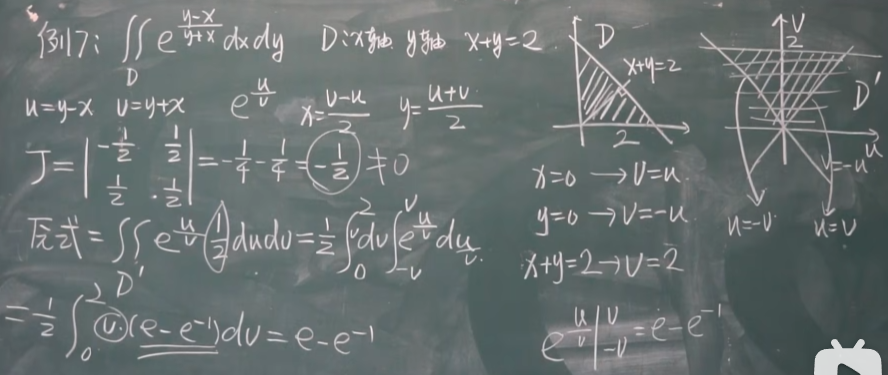 例17: ∬_D e^{\frac{y-x}{y+x}} dxdy D: x轴 y轴 x+y=2
u=y-x v=y+x e^{\frac{u}{v}} x=\frac{v-u}{2} y=\frac{u+v}{2}
J=\begin{vmatrix} -\frac{1}{2} & \frac{1}{2} \\ \frac{1}{2} & \frac{1}{2} \end{vmatrix} = -\frac{1}{4}-\frac{1}{4} = -\frac{1}{2} ≠ 0
原式 = ∬_{D'} e^{\frac{u}{v}} \frac{1}{2} dudv = \frac{1}{2} ∫_0^2 v dv ∫_{-v}^{v} e^{\frac{u}{v}} d\frac{u}{v}
= \frac{1}{2} ∫_0^2 v·(e-e^{-1}) dv = e-e^{-1}
D
x+y=2
2
x=0 → v=u
y=0 → v=-u
x+y=2 → v=2
e^{\frac{u}{v}} |_{-v}^{v} = e-e^{-1}
v
2
D'
u
v=-u
u=-v u=v